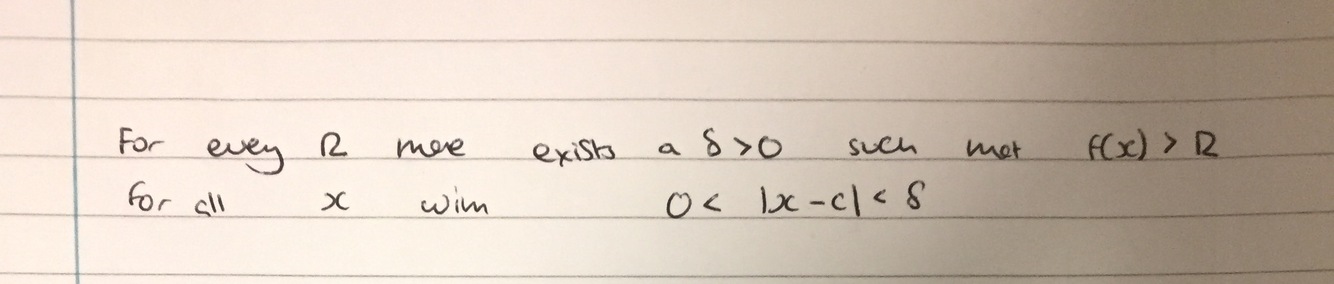 For every R there exists a δ>0 such that f(x) > R
for all x with 0 < |x-c| < δ